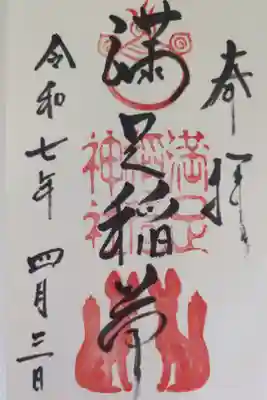 奉拝
満足稲荷
満足
稲荷
神社
令和七年 四月三日